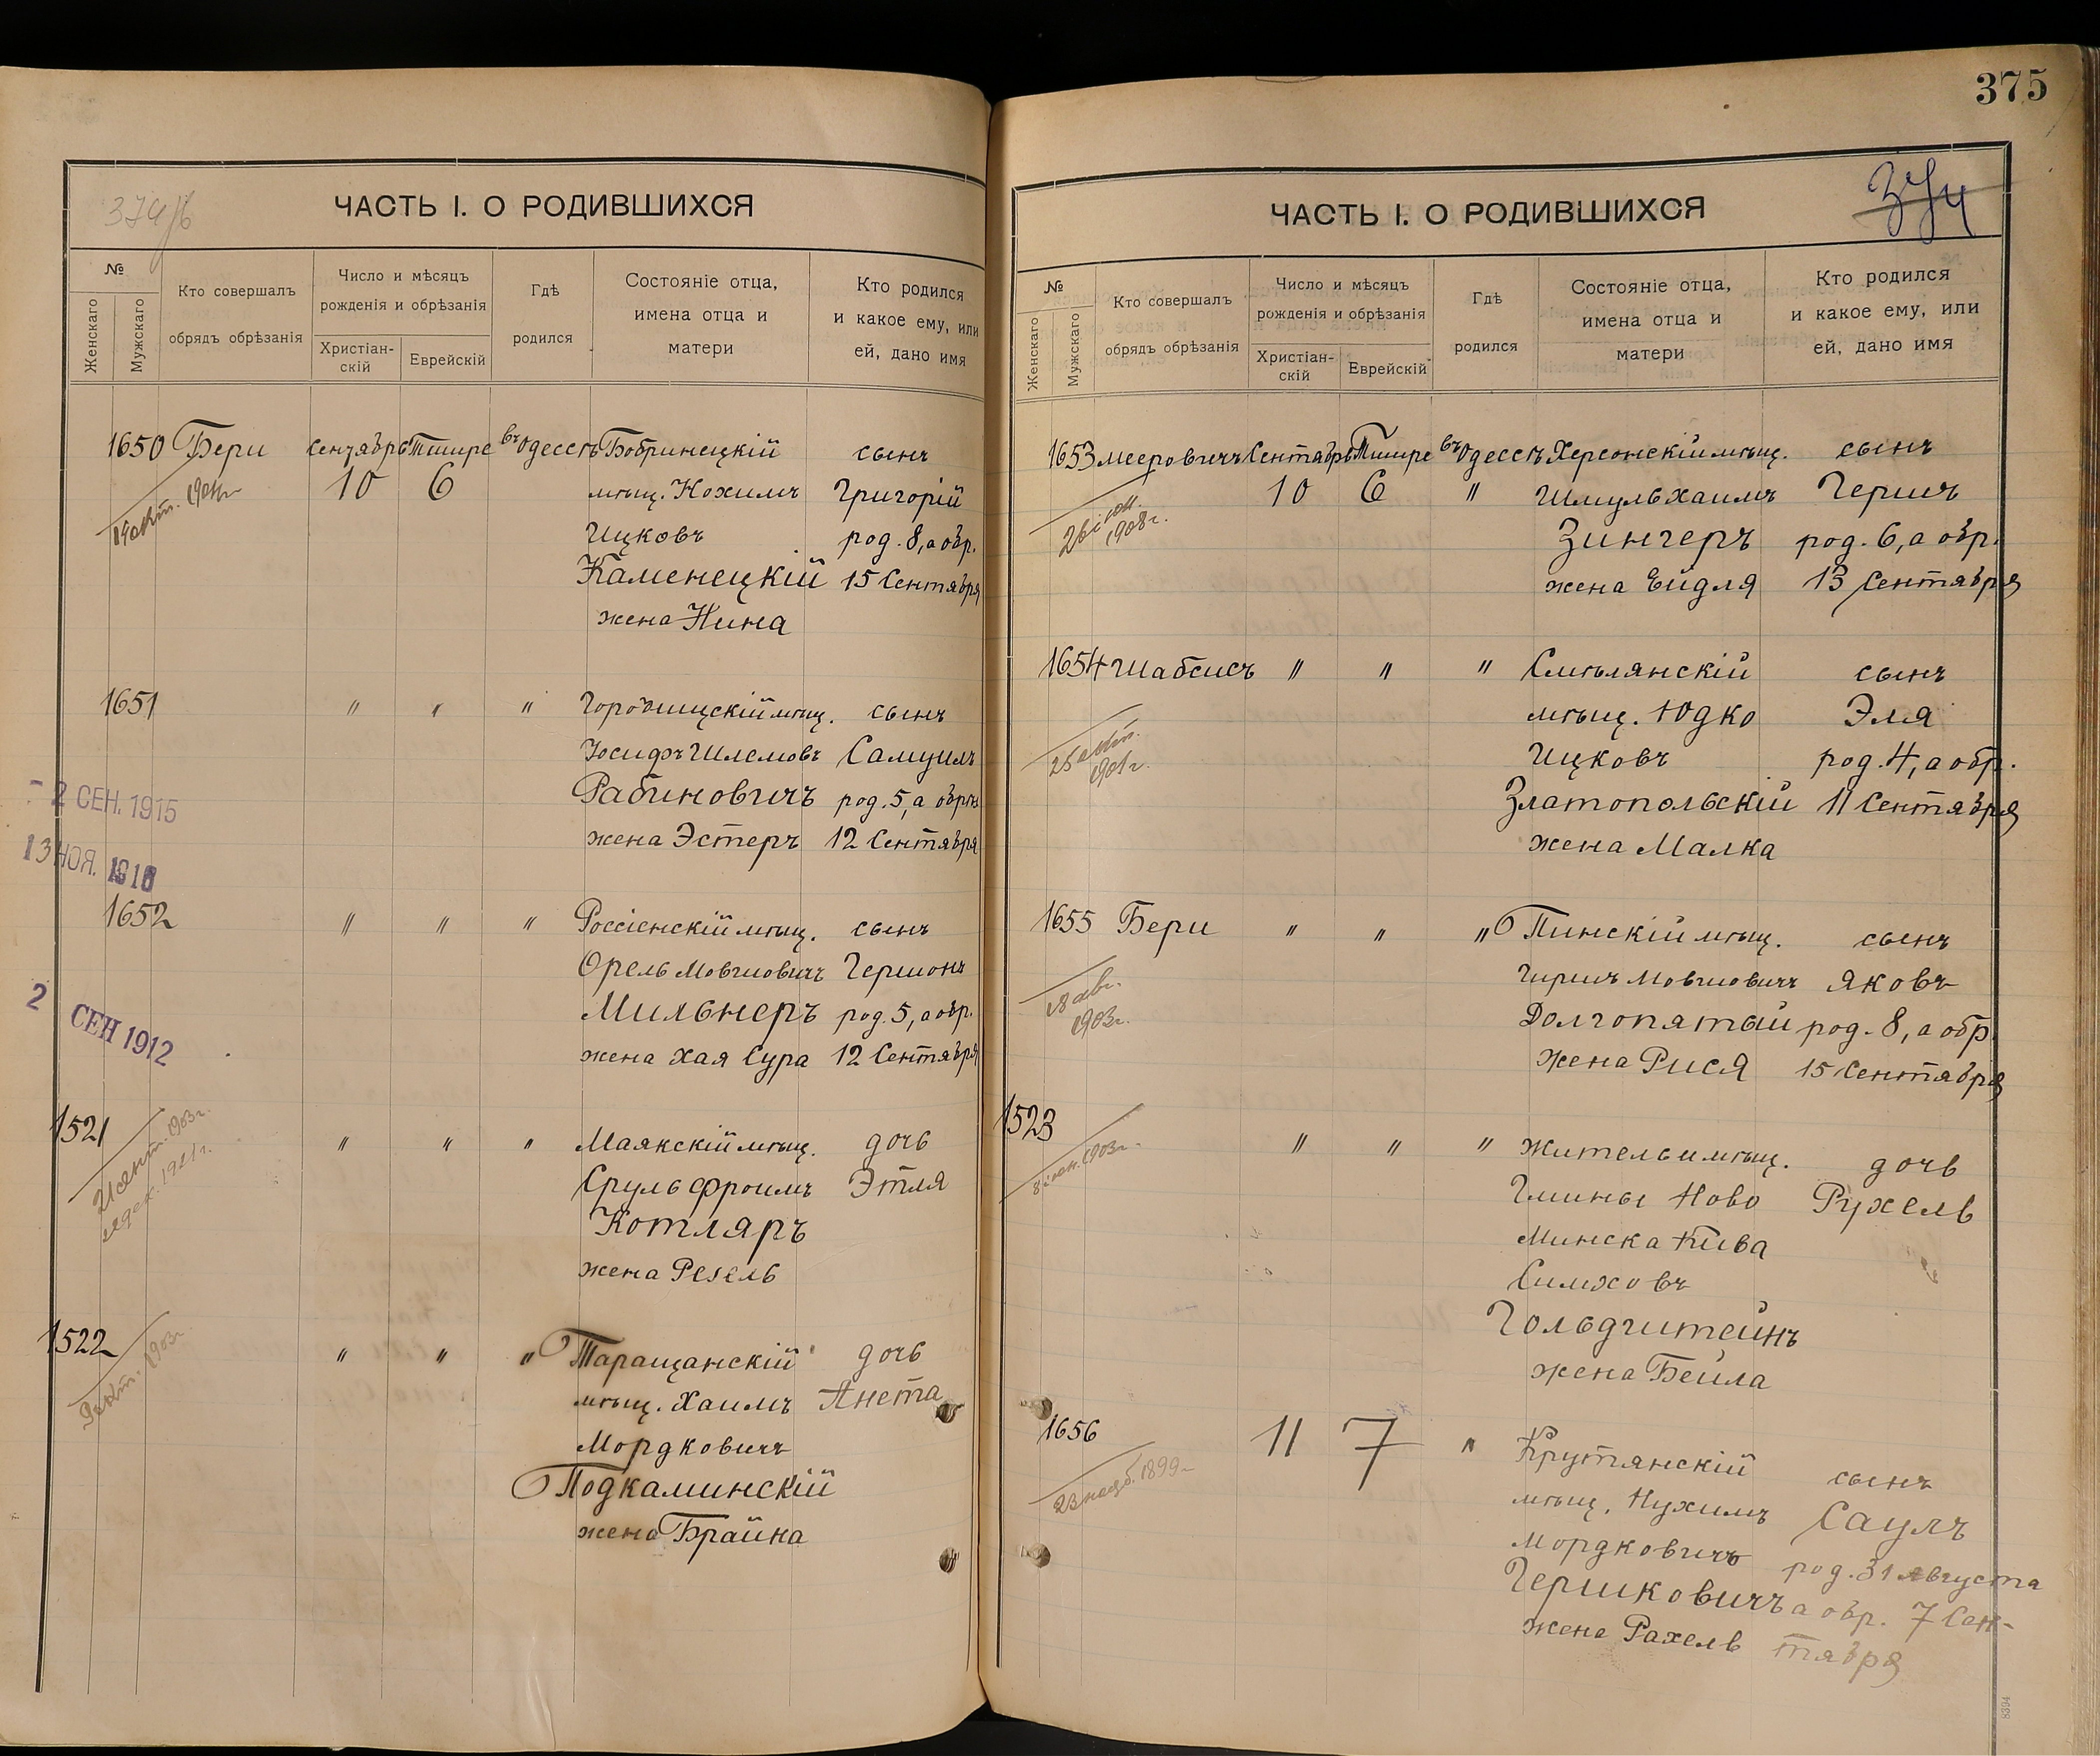 375
374/б
ЧАСТЬ I. О РОДИВШИХСЯ
№
Женскаго
Мужскаго
Кто совершалъ
обрядъ обрѣзанія
Число и мѣсяцъ
рожденія и обрѣзанія
Христіан-
скій
Еврейскій
Гдѣ
родился
Состояніе отца,
имена отца и
матери
Кто родился
и какое ему, или
ей, дано имя
1650 Бери Сентября Тишре въ Одессѣ Бобринецкій сынъ
10 6 мѣщ. Нохимъ Григорій
Ицковъ род. 8, а обр.
Каменецкій 15 Сентября
жена Нина
1651 " " " Городищскій мѣщ. сынъ
Іосифъ Шлемовъ Самуилъ
Рабиновичъ род. 5, а обрѣз
жена Эстеръ 12 Сентября
- 2 СЕН. 1915
13 НОЯ. 1918
1652 " " " Россіенскій мѣщ. сынъ
Орель Мовшовичъ Гершонъ
Мильнеръ род. 5, а обр.
жена Хая Сура 12 Сентября
2 СЕН 1912
1521 " " " Маякскій мѣщ. дочь
21 сент. 1903 г.
Сруль Фроимъ Этля
Котляръ
жена Резель
1522 " " " Таращанскій дочь
мѣщ. Хаимъ Анета
Мордковичъ
Подкаминскій
жена Брайна
ЧАСТЬ I. О РОДИВШИХСЯ
374
№
Женскаго
Мужскаго
Кто совершалъ
обрядъ обрѣзанія
Число и мѣсяцъ
рожденія и обрѣзанія
Христіан-
скій
Еврейскій
Гдѣ
родился
Состояніе отца,
имена отца и
матери
Кто родился
и какое ему, или
ей, дано имя
1653 Мееровичъ Сентября Тишре въ Одессѣ Херсонскій мѣщ. сынъ
10 6 " Шмуль Хаимъ Гершъ
1908 г.
Зингеръ род. 6, а обр.
жена Ейдля 13 Сентября
1654 Шабсисъ " " " Смѣлянскій сынъ
мѣщ. Юдко Эля
25 окт.
1901 г.
Ицковъ род. 4, а обр.
Златопольскій 11 Сентября
жена Малка
1655 Бери " " " Пинскій мѣщ. сынъ
Гиршъ Мовшовичъ Яковъ
18 авг.
1903 г.
Долгопятый род. 8, а обр.
жена Рися 15 Сентября
1523 " " " Житель и мѣщ. дочь
Гмины Ново Рухель
Минска Кива
Симховъ
Гольдштейнъ
жена Бейла
1656 11 7 " Крутянскій сынъ
мѣщ. Нухимъ Саулъ
Мордковичъ род. 31 Августа
Гершковичъ а обр. 7 Сен-
жена Рахель тября
8394